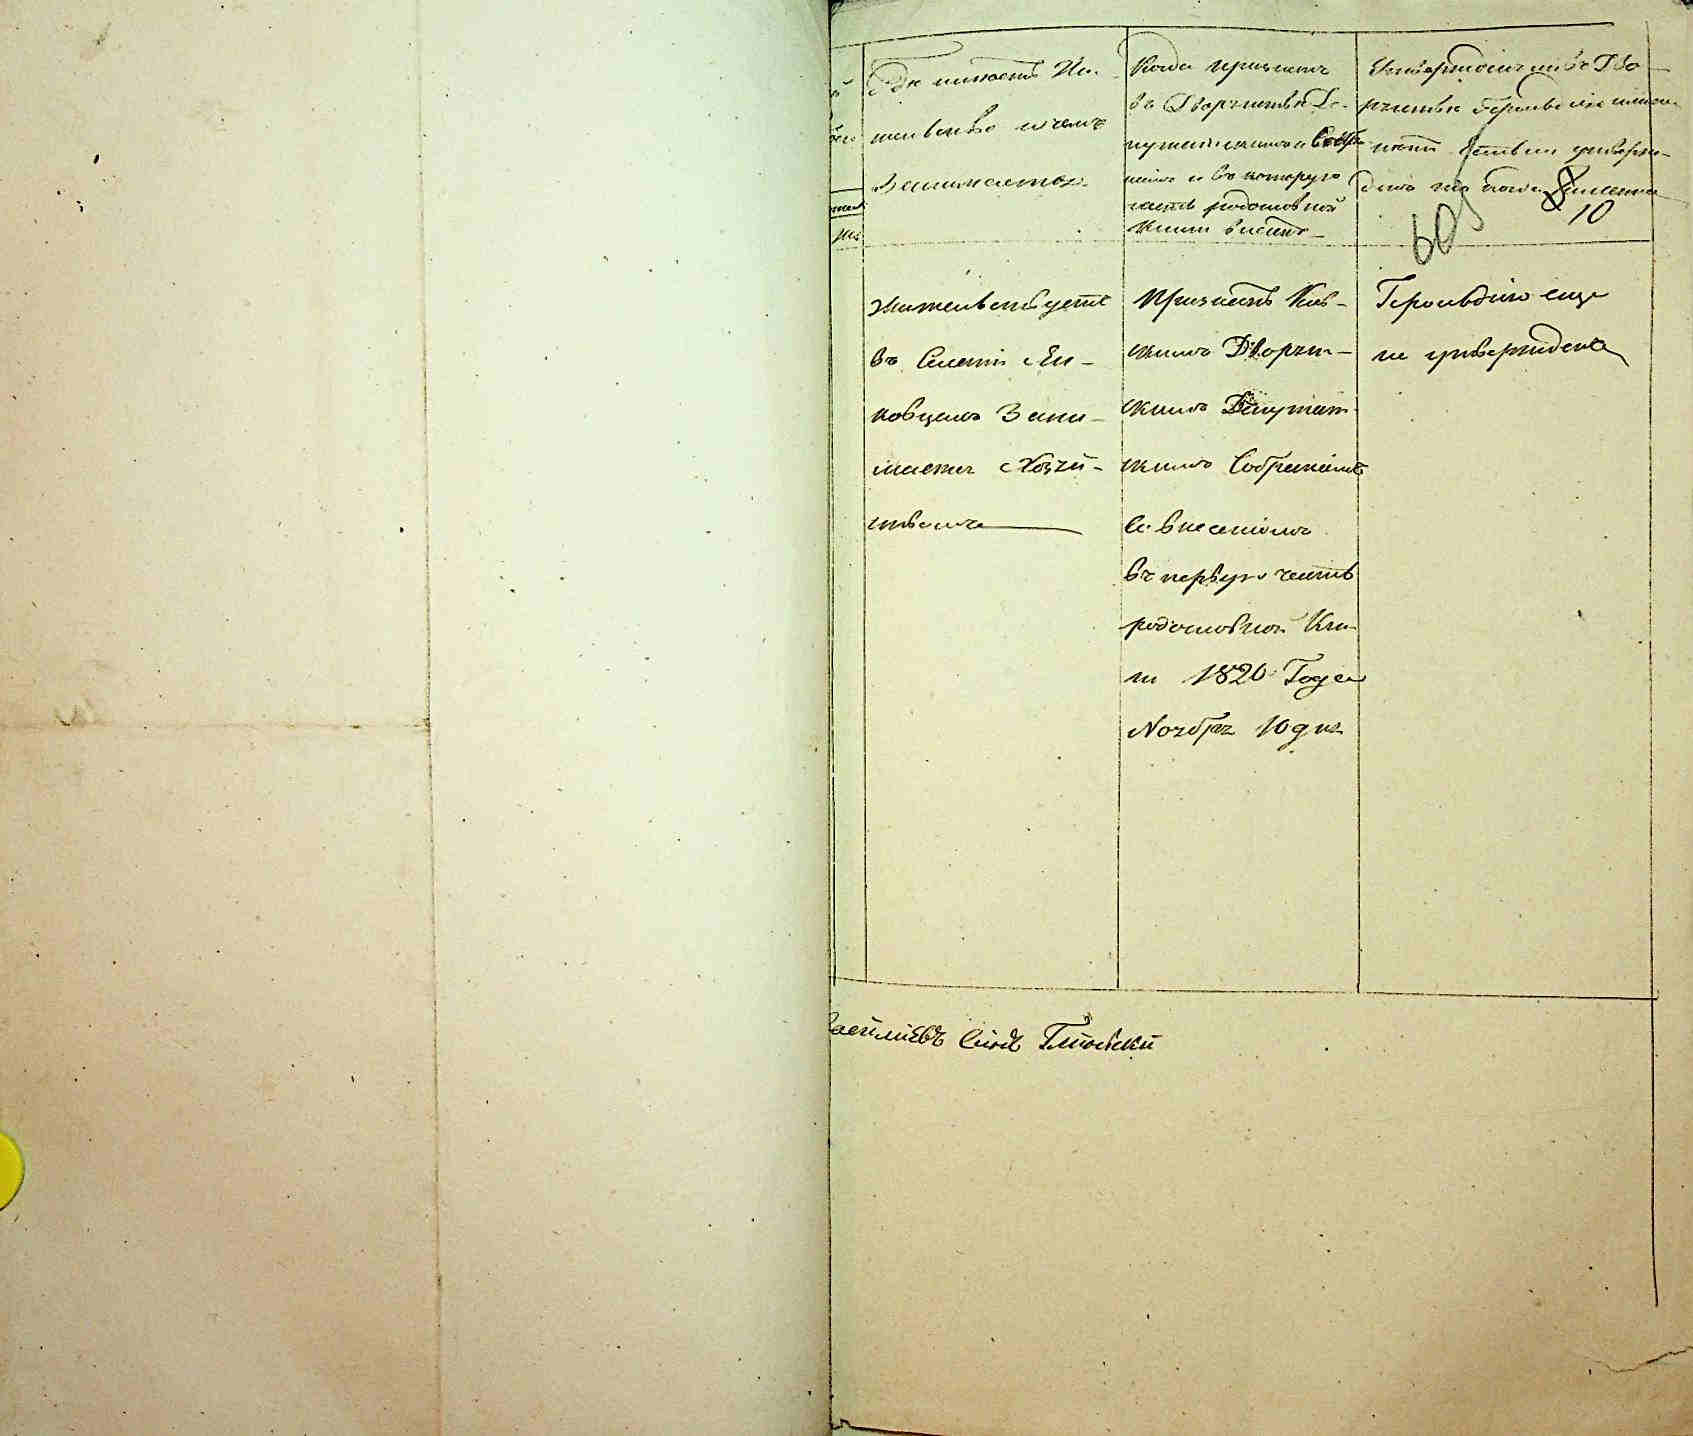 Где имеетъ Жи-
тельство и чемъ
занимается.
Когда признанъ
въ Дворянствѣ Де-
путатскимъ Собра-
ніемъ и въ которую
часть родословной
Книги внесенъ
Утвержденъ ли въ Дво-
рянствѣ Герольдіею
10
609
Жительствуетъ
въ Селеніи
Зани-
мается Хозяй-
ствомъ
Признанъ Кiев-
скимъ Дворян-
скимъ Депутат-
скимъ Собраніемъ
Со внесеніемъ
въ первую часть
родословной Кни-
ги 1820 Года
Ноября 10 дня
Герольдіею еще
не утвержденъ
Василиевъ Синъ